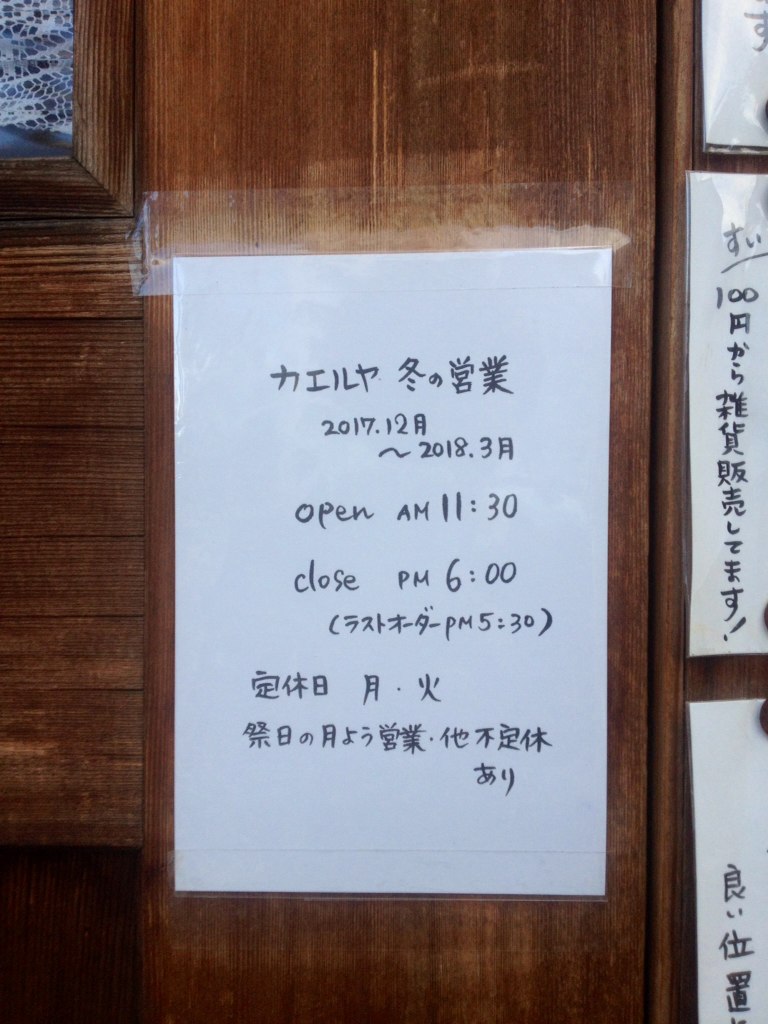 カエルヤ 冬の営業
2017.12月
～2018.3月
open AM 11:30
close PM 6:00
(ラストオーダーPM5:30)
定休日 月・火
祭日の月よう営業・他不定休
あり
す
すい
100円から雑貨販売してます!
良い位置